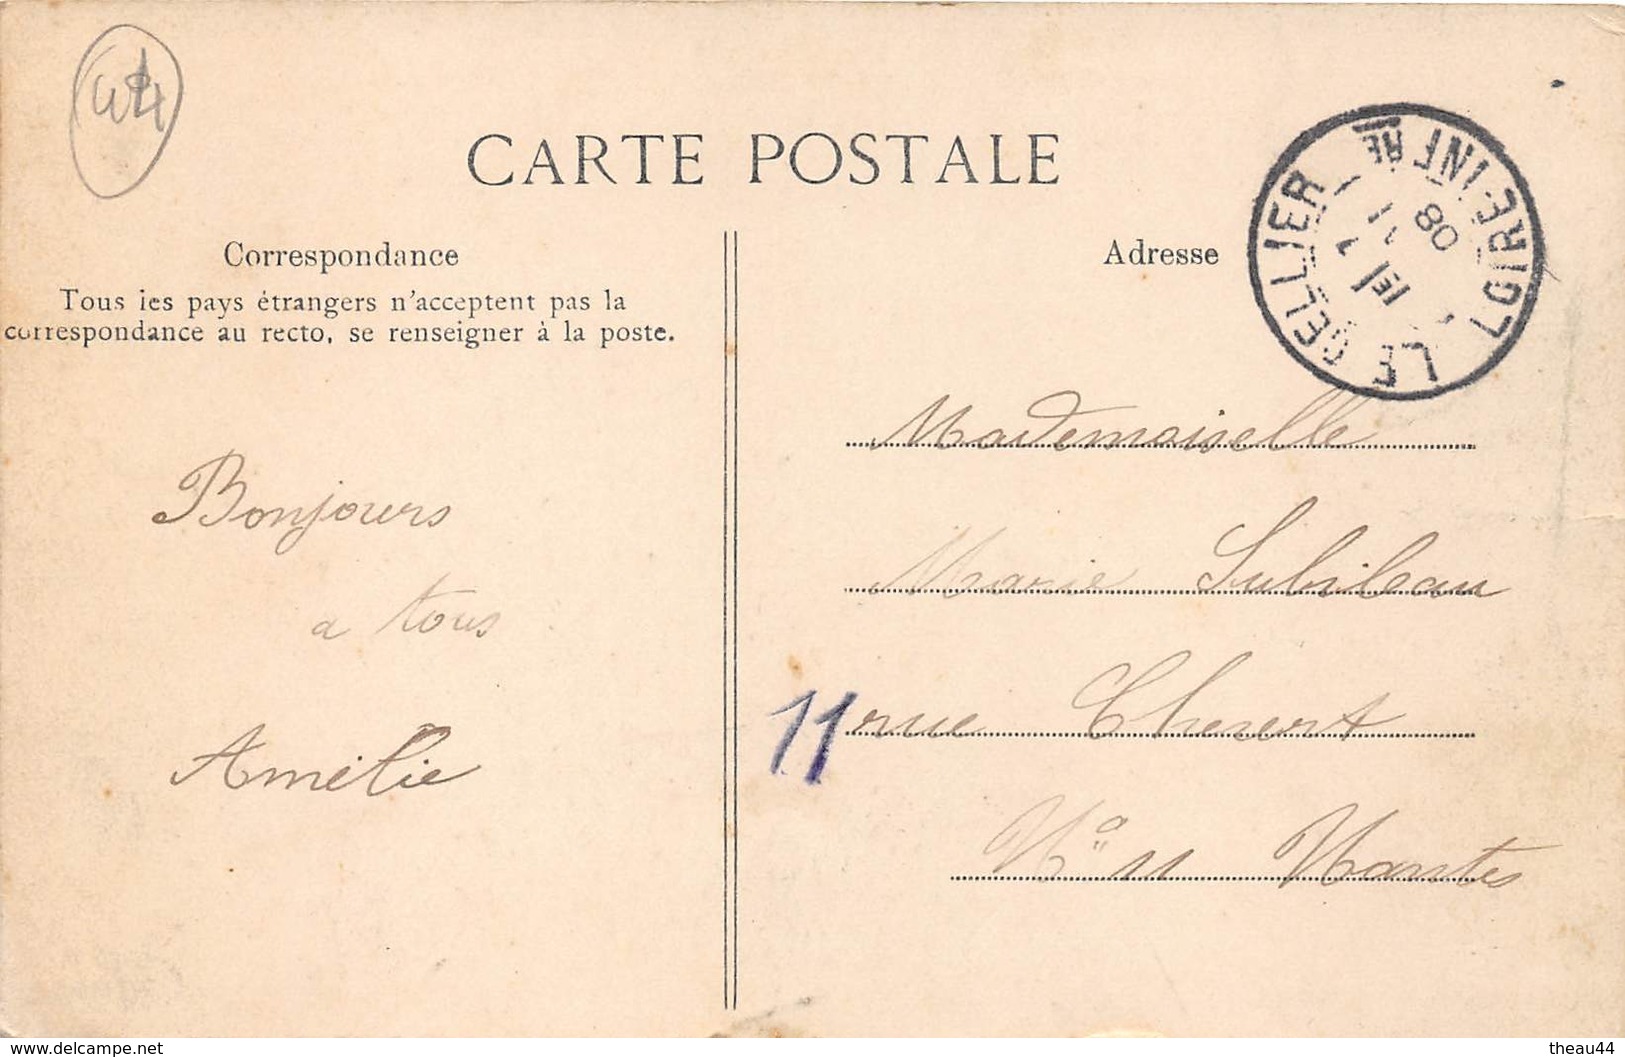 44
CARTE POSTALE
Correspondance
Tous les pays étrangers n'acceptent pas la
correspondance au recto, se renseigner à la poste.
Bonjours
a tous
Amélie
Adresse
LE CELLIER
LOIRE-INFRE
11
08
Mademoiselle
Marie Subileau
11 rue Chevert
No 11 Nantes
www.delcampe.net
theau44